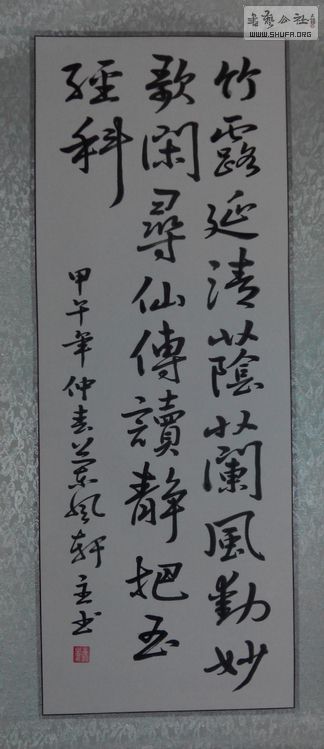 竹露延清蔭蘭風動妙
歌閑尋仙傳讀靜把玉
經科
甲午年仲春蘭風軒主书
书艺公社
WWW.SHUFA.ORG